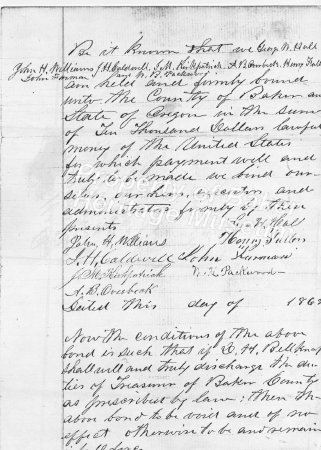 Be it known that we George W. Hall
John H. Williams J. H. Caldwell, J. M. Kirkpatrick, A. B. Overbeck, Henry Fuller
John Furman and W. H. Packwood
am held and firmly bound
unto the County of Baker and
State of Oregon in the sum
of Ten Thousand Dollars lawful
money of the United States
for which payment well and
truly to be made we bind our
selves, our heirs, executors, and
administrators firmly by these
presents
Geo W. Hall
John, H. Williams Henry Fuller
J. H. Caldwell John Furman
J. M. Kirkpatrick W. H. Packwood
A. B. Overbeck
Dated this day of 186
Now the conditions of the above
bond is such that if D. H. Belknap
shall will and truly discharge the du
ties of Treasurer of Baker County
as prescribed by law: then the
above bond to be void and of no
effect otherwise to be and remain